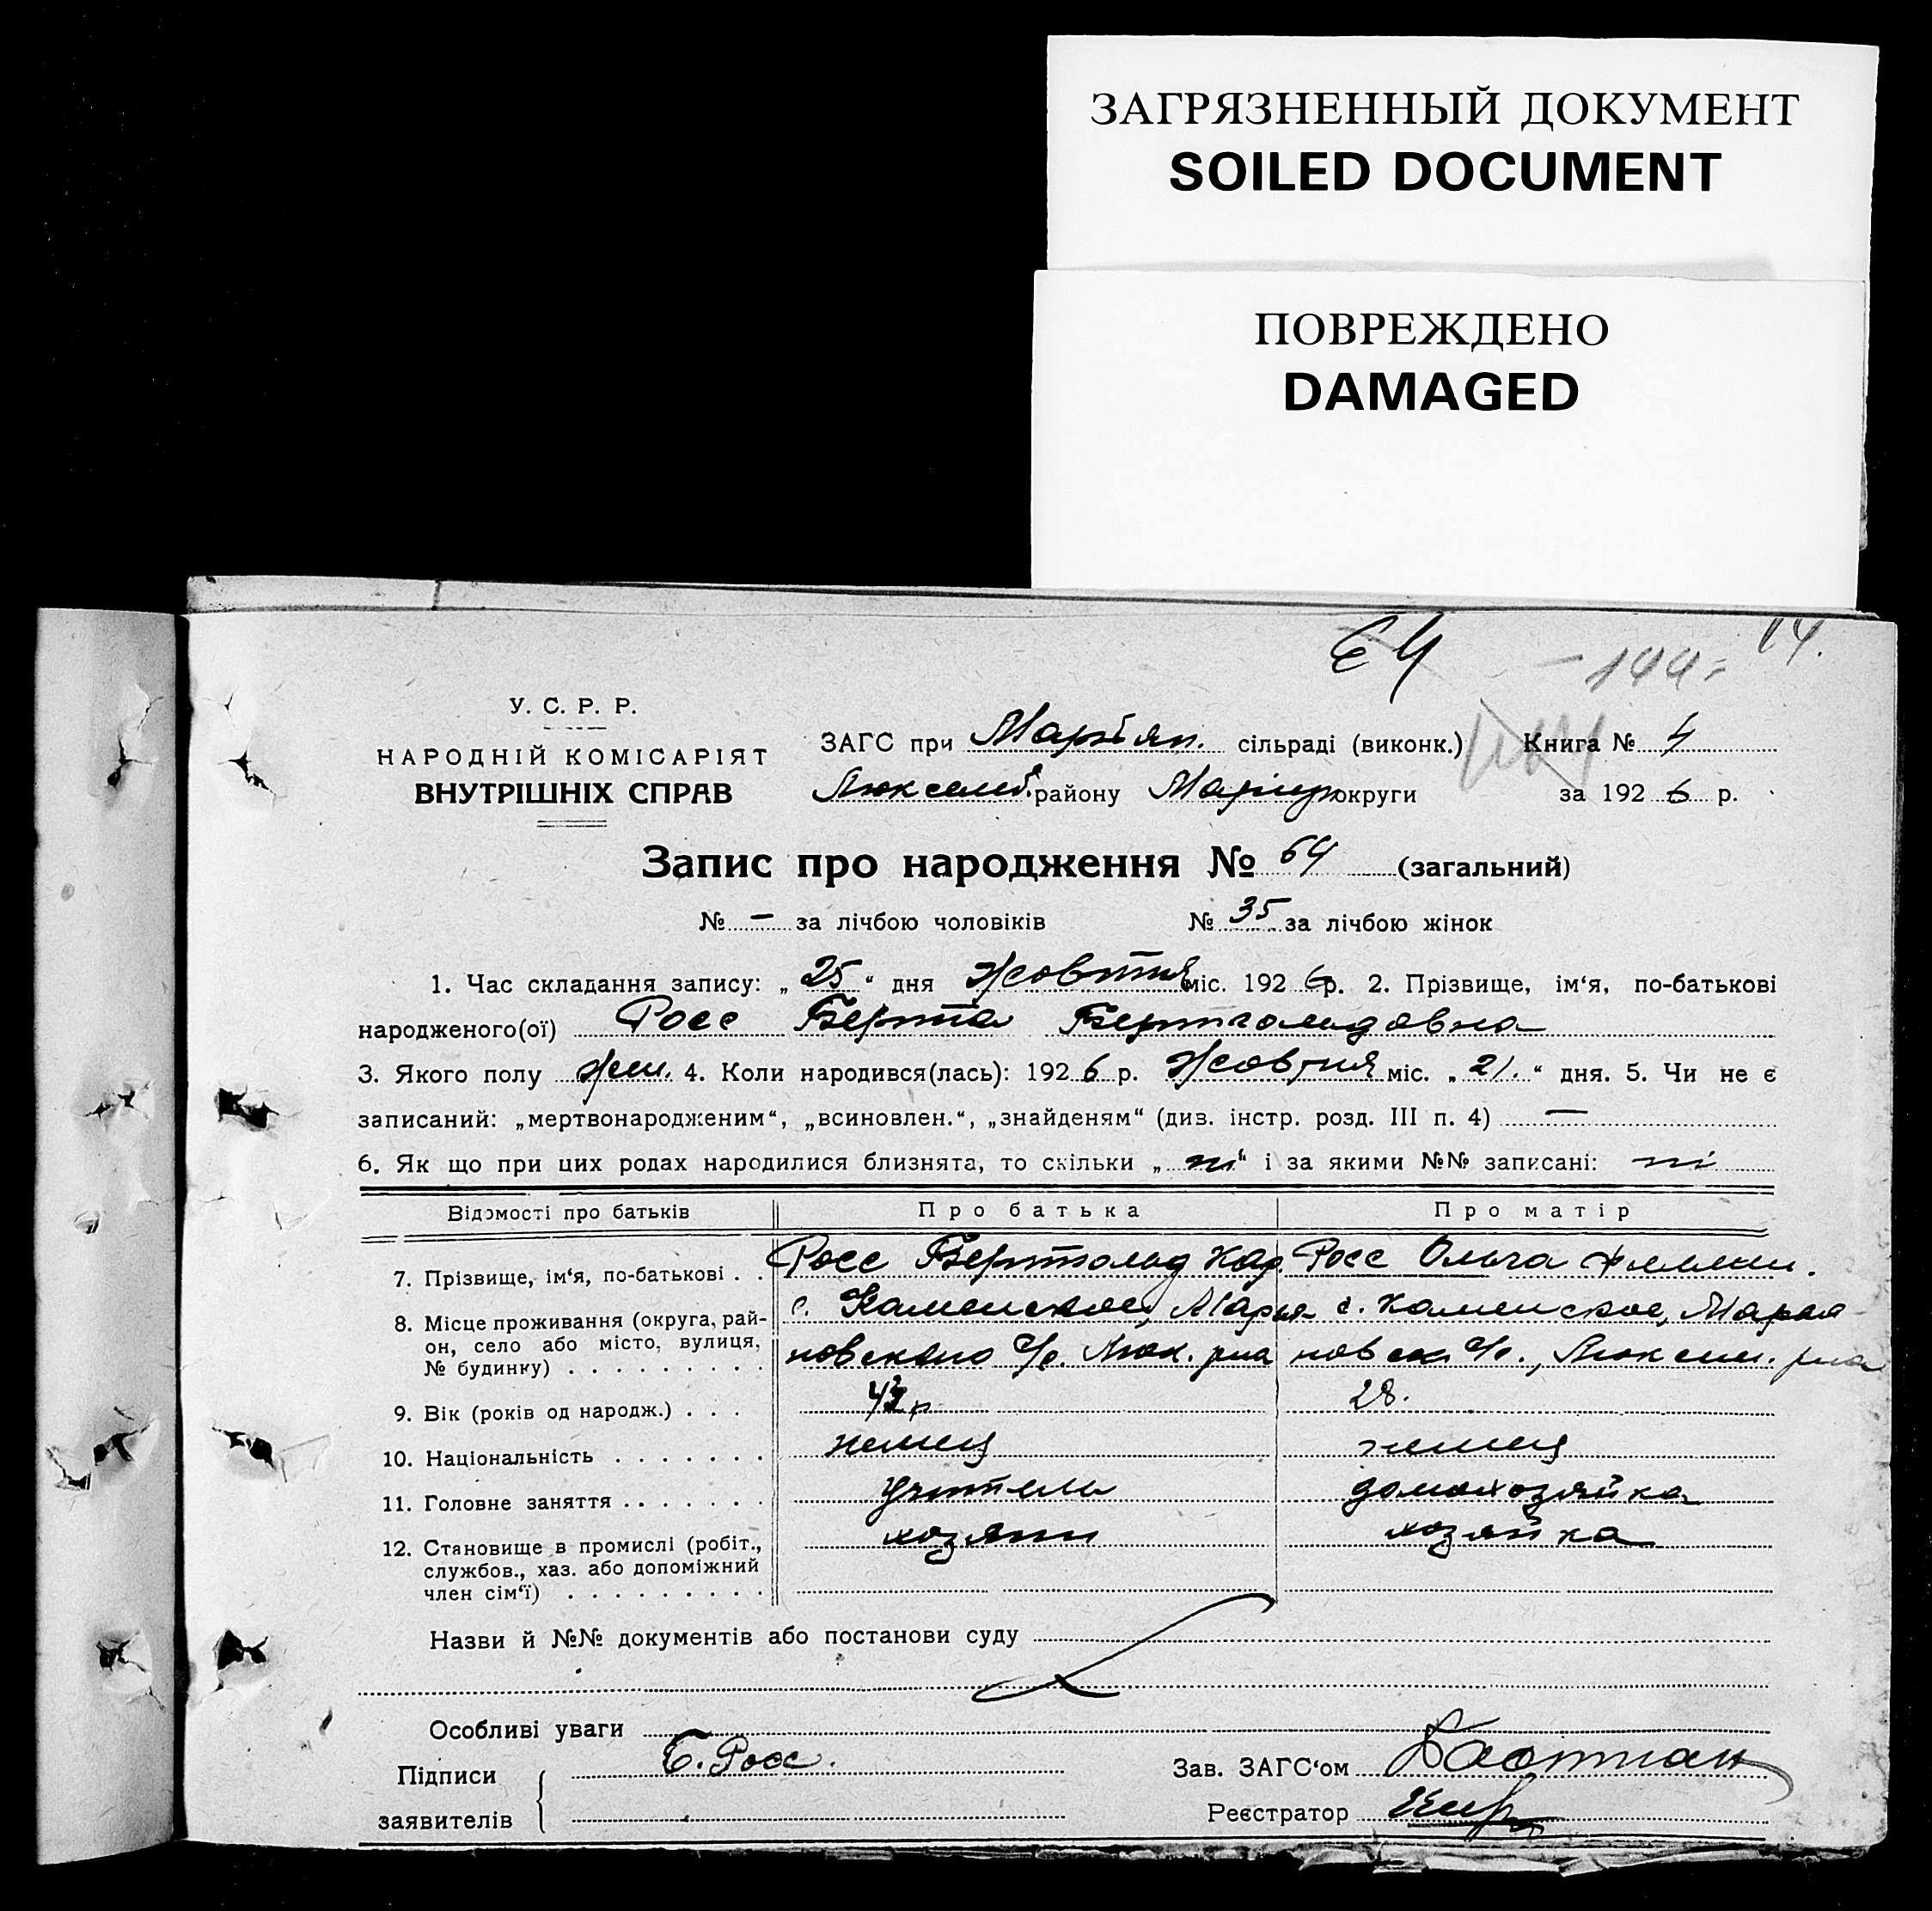 ЗАГРЯЗНЕННЫЙ ДОКУМЕНТ
SOILED DOCUMENT
ПОВРЕЖДЕНО
DAMAGED
64
14.
-144-
У. С. Р. Р.
НАРОДНІЙ КОМІСАРІЯТ
ВНУТРІШНІХ СПРАВ
ЗАГС при Марьян. сільраді (виконк.) Книга № 4
Люксемб. району Маріуп округи за 1926 р.
Запис про народження № 64 (загальний)
№ — за лічбою чоловіків № 35 за лічбою жінок
1. Час складання запису: „25“ дня Жовтня міс. 1926 р. 2. Прізвище, ім‘я, по-батькові
народженого(ої) Росс Берта Бертгольдовна
3. Якого полу жен. 4. Коли народився(лась): 1926 р. Жовтня міс. „21.“ дня. 5. Чи не є
записаний: „мертвонародженим“, „всиновлен.“, „знайденям“ (див. інстр. розд. III п. 4) —
6. Як що при цих родах народилися близнята, то скільки „ні“ і за якими №№ записані: ні
Відомості про батьків Про батька Про матір
7. Прізвище, ім‘я, по-батькові . . Росс Бертольд Росс Ольга
8. Місце проживання (округа, рай- с. Каменское, Марья- с. Каменское, Марья
он, село або місто, вулиця, новского с/с. Люк. рна новск с/с., Люксем. рна
№ будинку) . . . . . . . . .
9. Вік (років од народж.) . . . 28.
10. Національність . . . . . . . немец немец
11. Головне заняття . . . . . . . учитель домохозяйка
12. Становище в промислі (робіт., хозяин хозяйка
службов., хаз. або допоміжний
член сім‘ї) . . . . . . . . .
Назви й №№ документів або постанови суду
Особливі уваги
Підписи Б. Росс. Зав. ЗАГС‘ом Бастман
заявителів Реєстратор